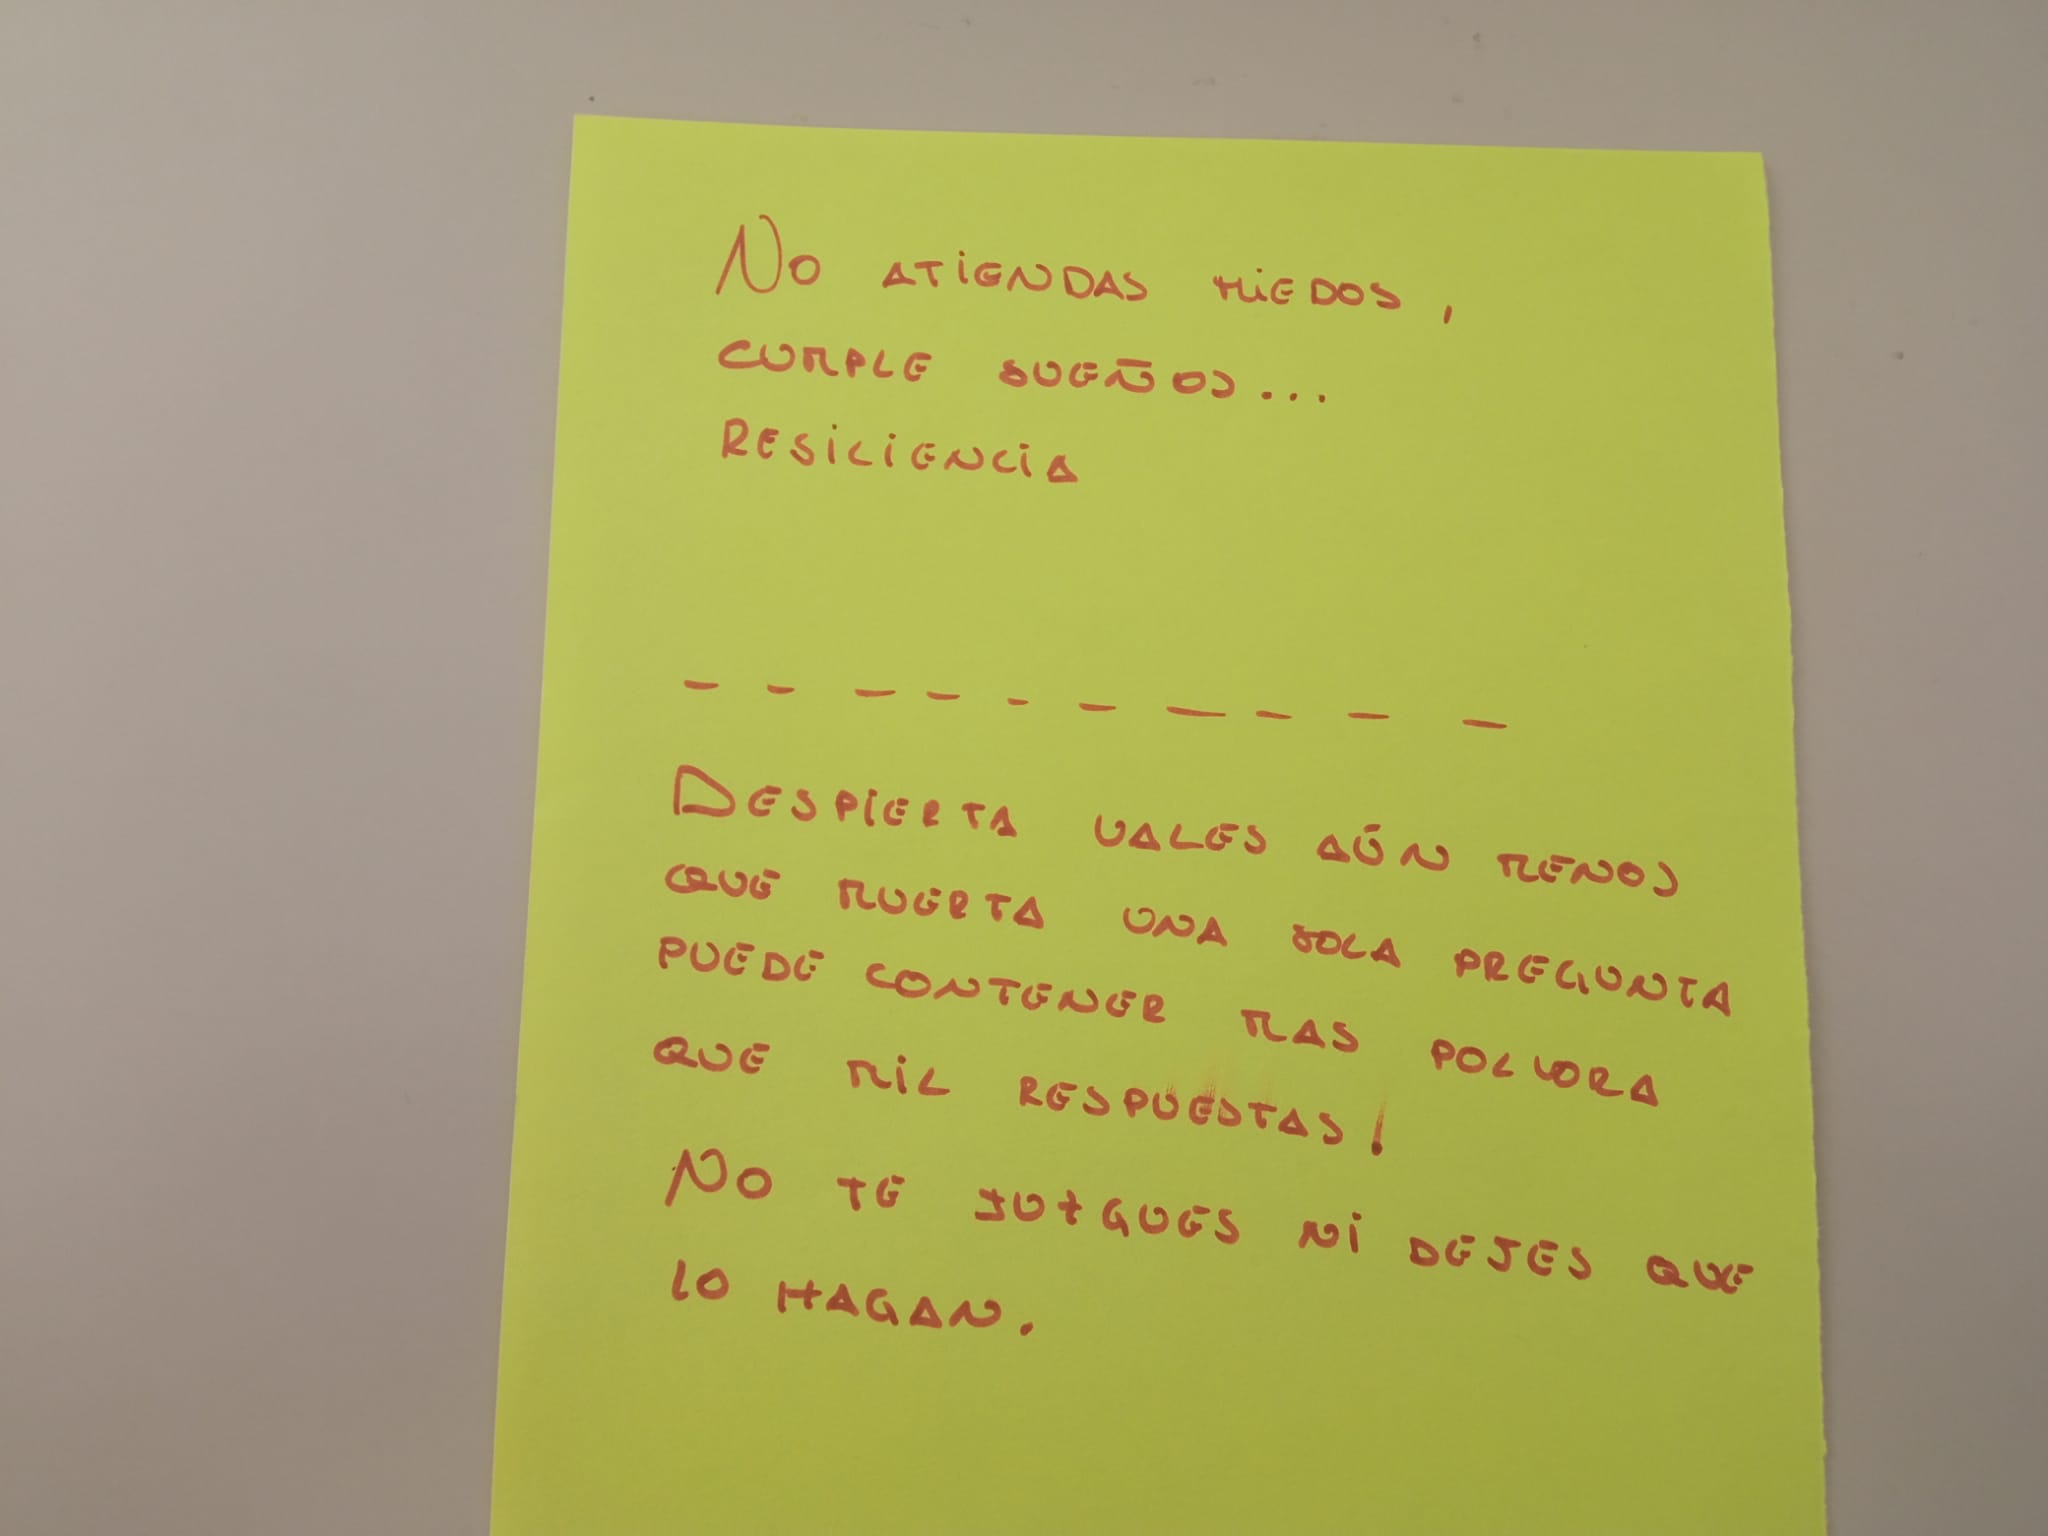 No ATiENDAS MiEDOS,
CUMPLE SUEÑOS...
RESiLiENCiA
- - - - - - - - - -
DESPiERTA VALES AÚN MENOS
QUE MUERTA UNA SOLA PREGUNTA
PUEDE CONTENER MAS POLVORA
QUE MiL RESPUESTAS!
NO TE JUZGUES Ni DEJES QUE
LO HAGAN.